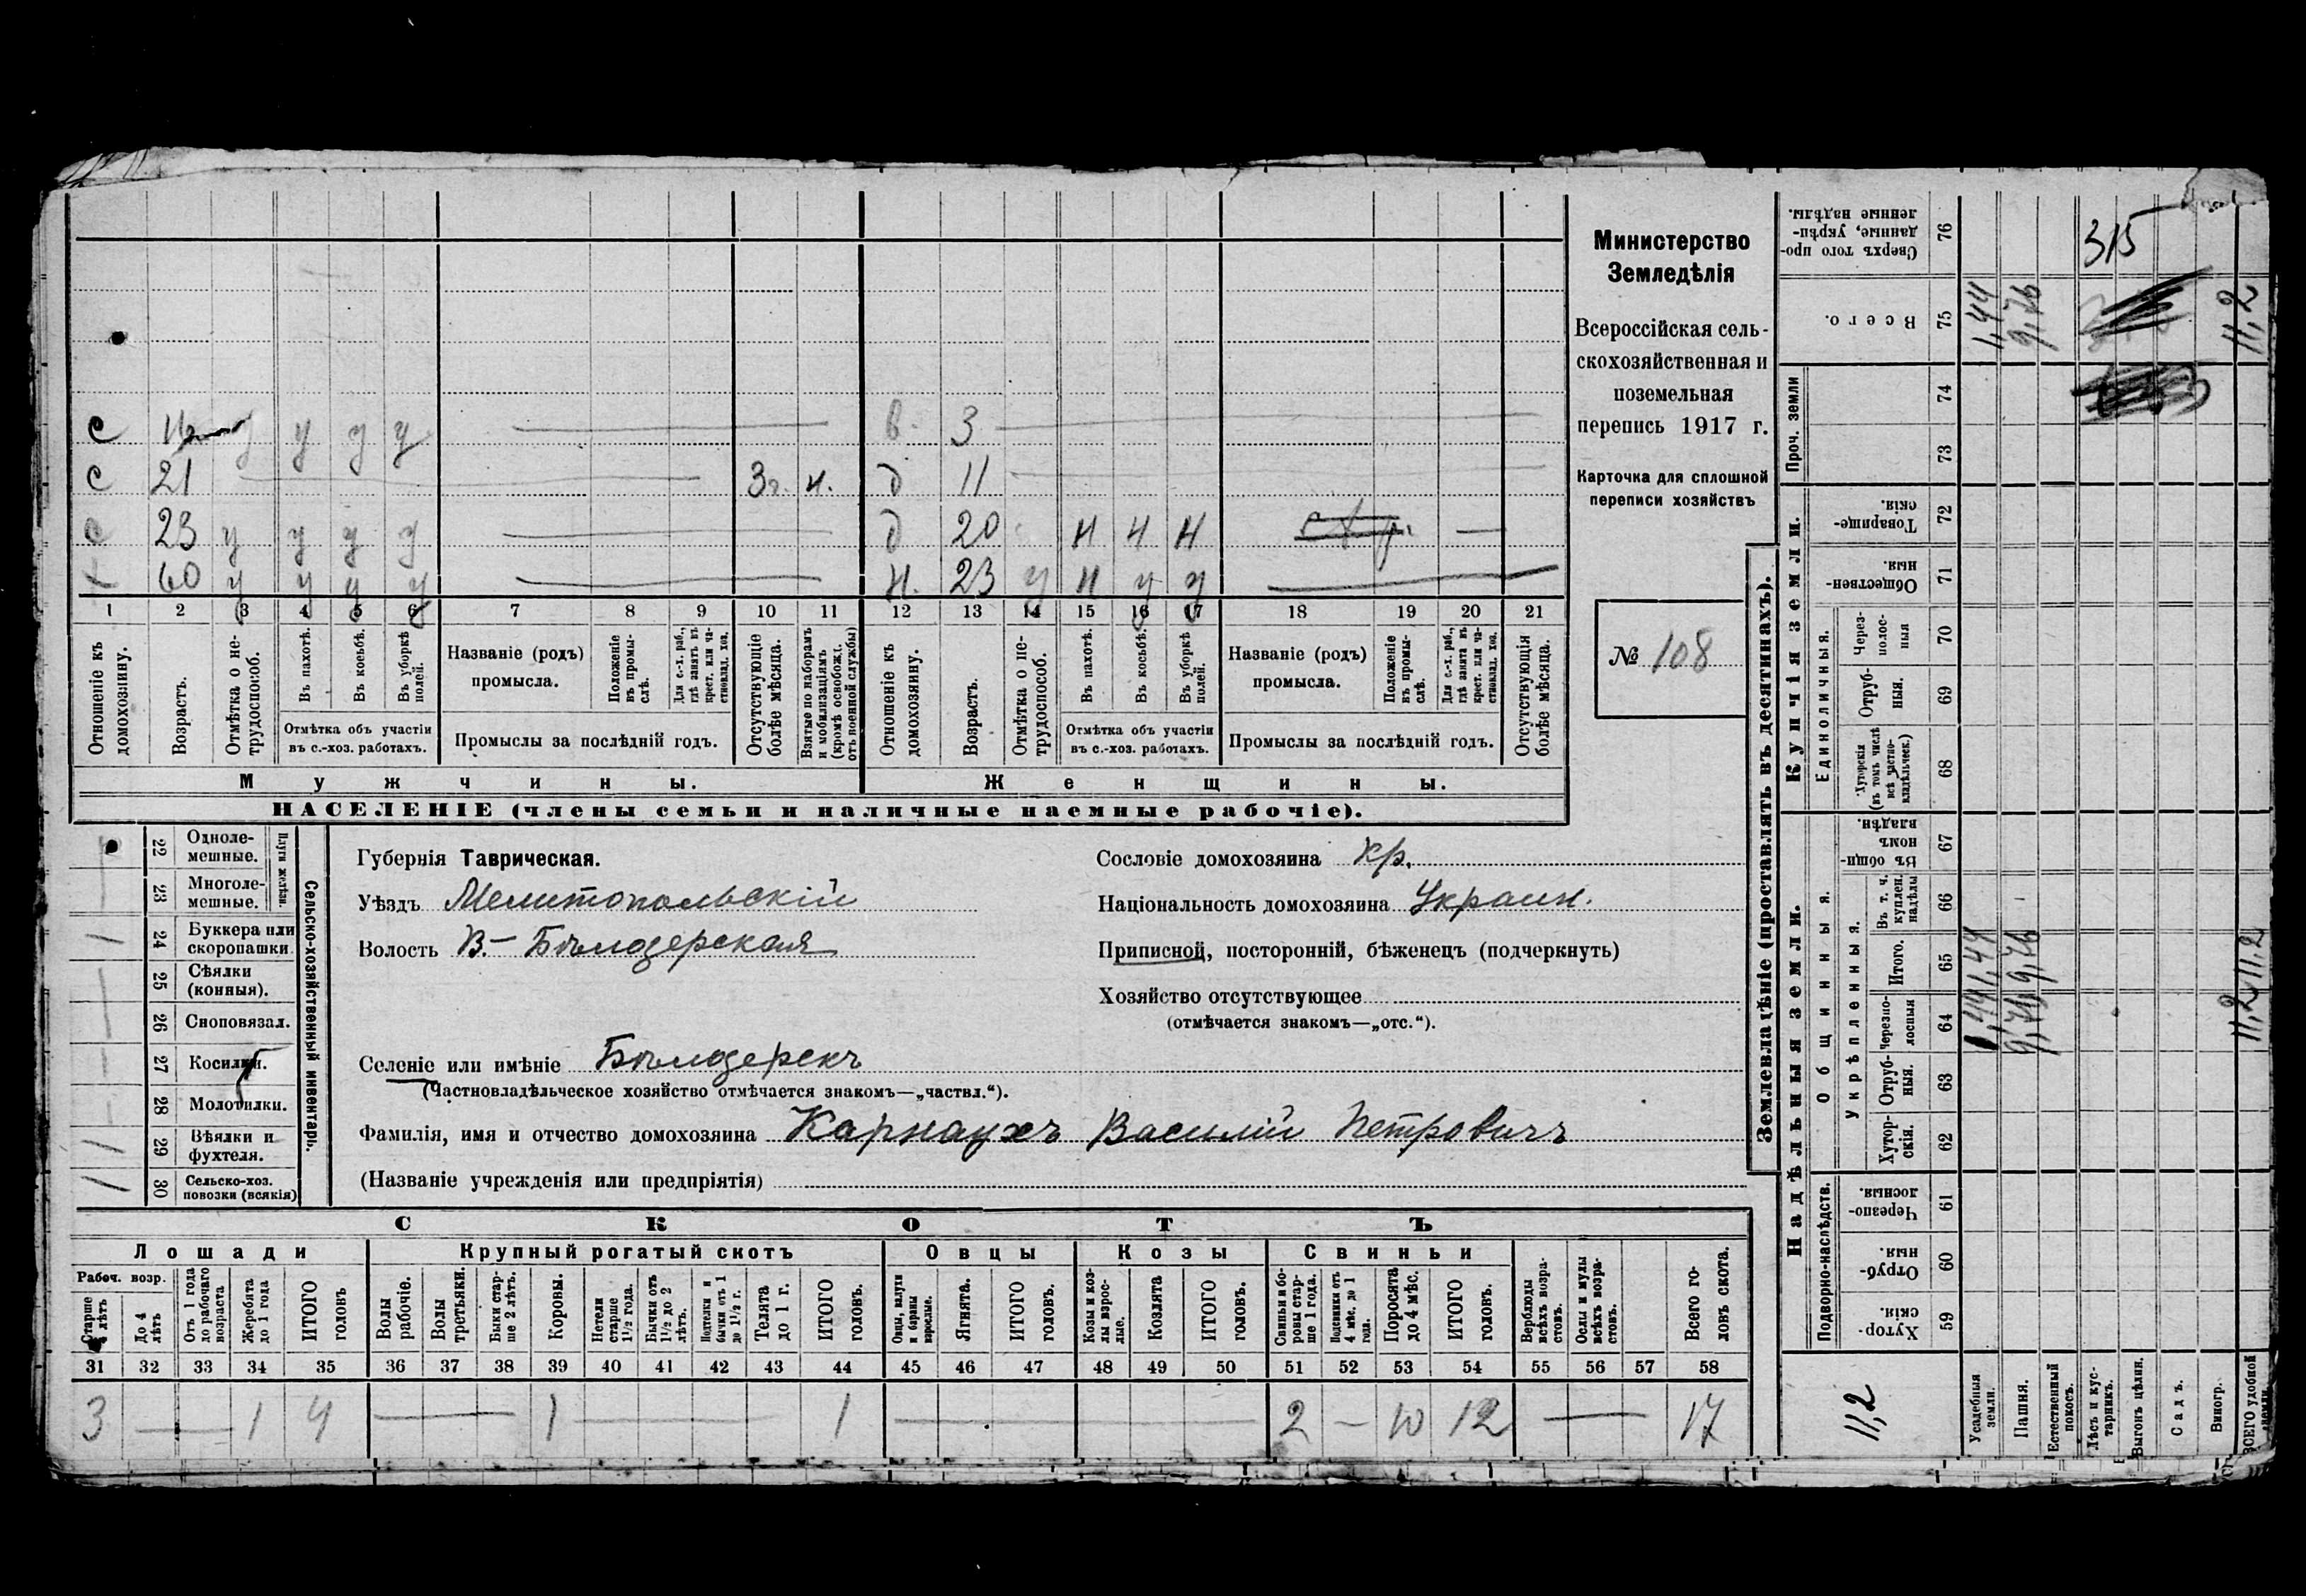 Министерство
Земледѣлія
Всероссійская сель-
скохозяйственная и
поземельная
перепись 1917 г.
Карточка для сплошной
переписи хозяйствъ
№ 108
с у у у — в. 3 —
с 21 — 3г. н. д 11 —
с 23 у у у у — д 20 н н н —
60 у у у у — н. 23 у н у у —
1 2 3 4 5 6 7 8 9 10 11 12 13 14 15 16 17 18 19 20 21
Отношеніе къ домохозяину.
Возрастъ.
Отмѣтка о не-трудоспособ.
Въ пахотѣ.
Въ косьбѣ.
Въ уборкѣ полей.
Отмѣтка объ участіи
въ с.-хоз. работахъ.
Названіе (родъ)
промысла.
Положеніе въ промы-слѣ.
Для с.-х. раб., гдѣ занятъ въ крест. или ча-стновлад. хоз.
Промыслы за послѣдній годъ.
Отсутствующіе болѣе мѣсяца.
Взятые по наборамъ и мобилизаціямъ (кромѣ освобожд. отъ военной службы)
Отношеніе къ домохозяину.
Возрастъ.
Отмѣтка о не-трудоспособ.
Въ пахотѣ.
Въ косьбѣ.
Въ уборкѣ полей.
Отмѣтка объ участіи
въ с.-хоз. работахъ.
Названіе (родъ)
промысла.
Положеніе въ промы-слѣ.
Для с.-х. раб., гдѣ занята въ крест. или ча-стновлад. хоз.
Промыслы за послѣдній годъ.
Отсутствующія болѣе мѣсяца.
Мужчины. Женщины.
НАСЕЛЕНІЕ (члены семьи и наличные наемные рабочіе).
Сельско-хозяйственный инвентарь.
Плуги желѣзн.
22 Одноле-
мешные.
23 Многоле-
мешные.
1 24 Буккера или
скоропашки
25 Сѣялки
(конныя).
26 Сноповязал.
27 Косилки.
28 Молотилки.
1 29 Вѣялки и
фухтеля.
30 Сельско-хоз.
повозки (всякія)
Губернія Таврическая.
Уѣздъ Мелитопольскій
Волость В.-Бѣлозерская
Сословіе домохозяина кр.
Національность домохозяина Украин.
Приписной, посторонній, бѣженецъ (подчеркнуть)
Хозяйство отсутствующее
(отмѣчается знакомъ—„отс.“).
Селеніе или имѣніе Бѣлозеркъ
(Частновладѣльческое хозяйство отмѣчается знакомъ—„частвл.“).
Фамилія, имя и отчество домохозяина Карнаухъ Василій Петровичъ
(Названіе учрежденія или предпріятія)
СКОТЪ
Лошади Крупный рогатый скотъ Овцы Козы Свиньи
Рабоч. возр.
Старше 4 лѣтъ
До 4 лѣтъ
Отъ 1 года до рабочаго возраста
Жеребята до 1 года
ИТОГО головъ
Волы рабочіе.
Волы третьяки.
Быки стар-ше 2 лѣтъ.
Коровы.
Нетели старше 1½ года.
Бычки отъ 1½ до 2 лѣтъ.
Нетелки и бычки отъ 1 до 1½ г.
Телята до 1 г.
ИТОГО головъ.
Овцы, валухи и бараны взрослые.
Ягнята.
ИТОГО головъ.
Козы и коз-лы взрос-лые.
Козлята
ИТОГО головъ.
Свиньи и бо-ровы стар-ше 1 года.
Подсвинки отъ 4 мѣс. до 1 года.
Поросята до 4 мѣс.
ИТОГО головъ.
Верблюды всѣхъ возра-стовъ.
Ослы и мулы всѣхъ возра-стовъ.
Всего го-ловъ скота.
31 32 33 34 35 36 37 38 39 40 41 42 43 44 45 46 47 48 49 50 51 52 53 54 55 56 57 58
3 — 1 4 — 1 — 1 — 2 — 10 12 — 17
Землевладѣніе (проставлять въ десятинахъ).
Надѣльныя земли.
Купчія земли.
Проч. земли
Подворно-наслѣдств.
Общинныя.
Укрѣпленныя.
Единоличныя.
Хутор-скія. 59
Отруб-ныя. 60
Черезпо-лосныя. 61
Хутор-скія. 62
Отруб-ныя. 63
Черезпо-лосныя 64
Итого. 65
Въ т. ч. куплен. надѣлы 66
Въ общи-номъ владѣн. 67
Хуторскія (въ томъ числѣ всѣ частно-владѣльческ.) 68
Отруб-ныя. 69
Через-полос-ныя 70
Обществен-ныя. 71
Товарище-скія. 72
73
74
Всего. 75
Сверхъ того про-данные, укрѣп-ленные надѣлы. 76
Усадебныя земли. 1,44 1,44 1,44
Пашня. 9,76 9,76 9,76
Естественный покосъ.
Лѣсъ и кус-тарникъ.
Выгонъ цѣлин.
Садъ.
Виногр.
ВСЕГО удобной земли. 11,2 11,2 11,2
11,2
315